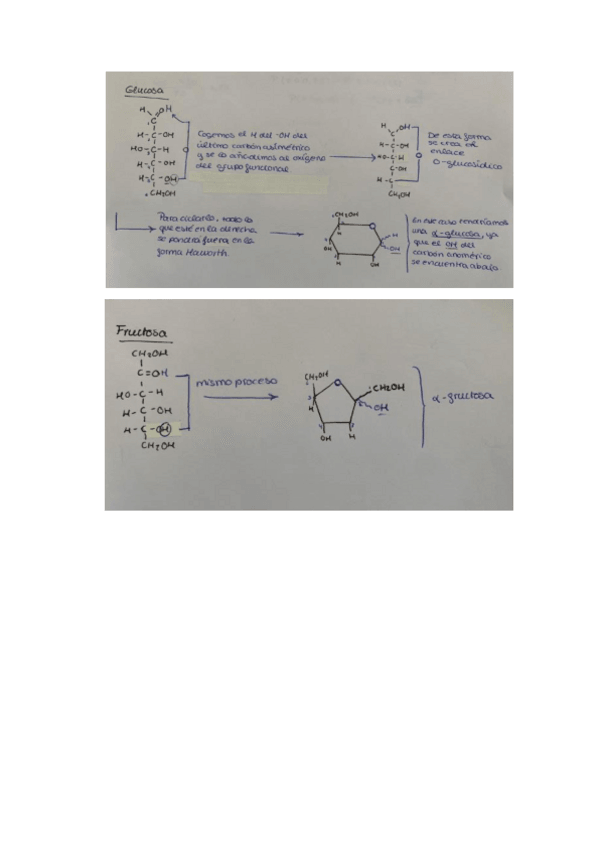 Glucosa
H OH
C
H-C-OH
HO-C-H
H-C-OH
H-C-OH
CH2OH
O
Cogemos el H del -OH del
último carbón asimétrico
y se lo añadimos al oxígeno
del grupo funcional
H OH
C
H-C-OH
HO-C-H
C-OH
H-C
CH2OH
O
De esta forma
se crea el
enlace
O-glucosídico
Para ciclarlo, todo lo
que esté en la derecha
se pondrá fuera en la
forma Haworth.
CH2OH
O
H
H
OH
OH
OH
En este caso tendríamos
una α-glucosa, ya
que el OH del
carbón anomérico
se encuentra abajo
Fructosa
CH2OH
C=OH
HO-C-H
H-C-OH
H-C-OH
CH2OH
mismo proceso
CH2OH
O
CH2OH
OH
H
OH
H
α-fructosa